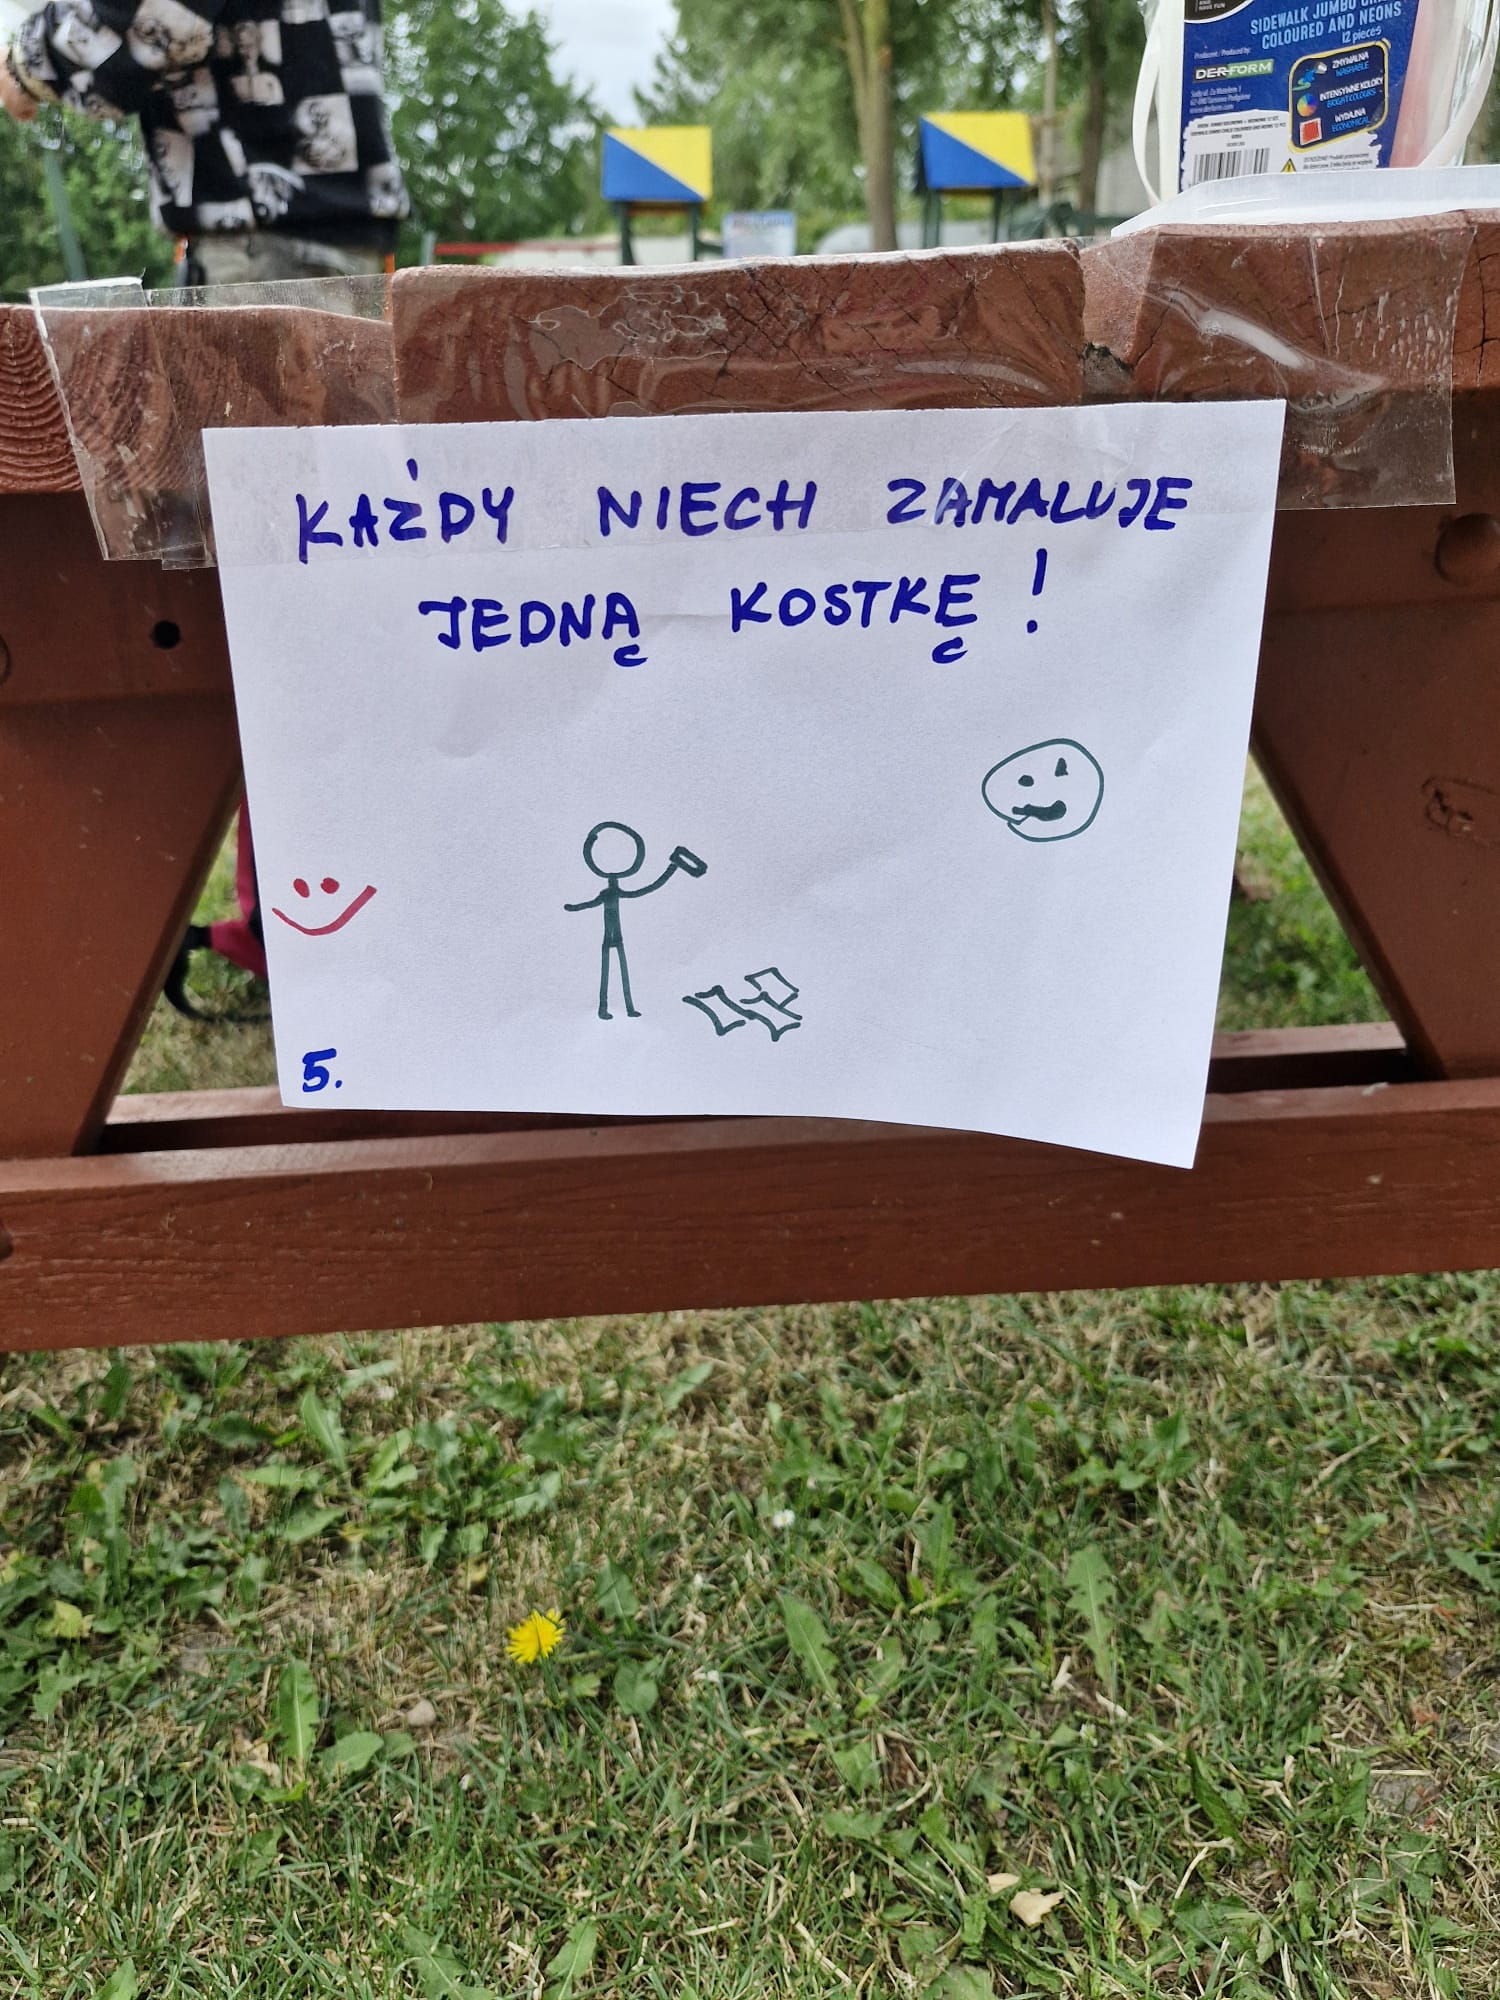 HAVE FUN
SIDEWALK JUMBO
COLOURED AND NEONS
12 pieces
Producent / Produced by:
DER-FORM
www.derform.com
ZMYWALNA
WASHABLE
INTENSYWNE KOLORY
BRIGHT COLOURS
WYDAJNA
ECONOMICAL
KAŻDY NIECH ZAMALUJE
JEDNĄ KOSTKĘ!
5.